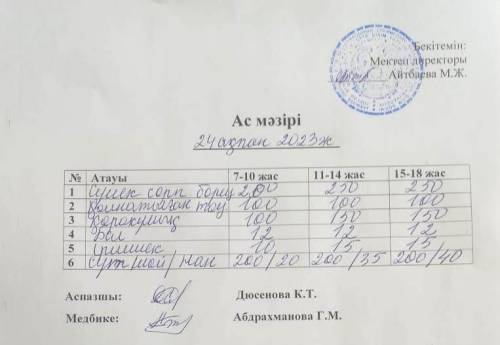 Бекітемін:
Мектеп директоры
Айтбаева М.Ж.
Ас мәзірі
24 ақпан 2023ж
№ Атауы 7-10 жас 11-14 жас 15-18 жас
1 сорп борщ 200 250 250
2 тау 100 100 100
3 Қарақұмық 100 150 150
4 12 12 12
5 Ірімшек 10 15 15
6 Сүт/шай/нан 200/20 200/35 200/40
Аспазшы: Дюсенова К.Т.
Медбике: Абдрахманова Г.М.